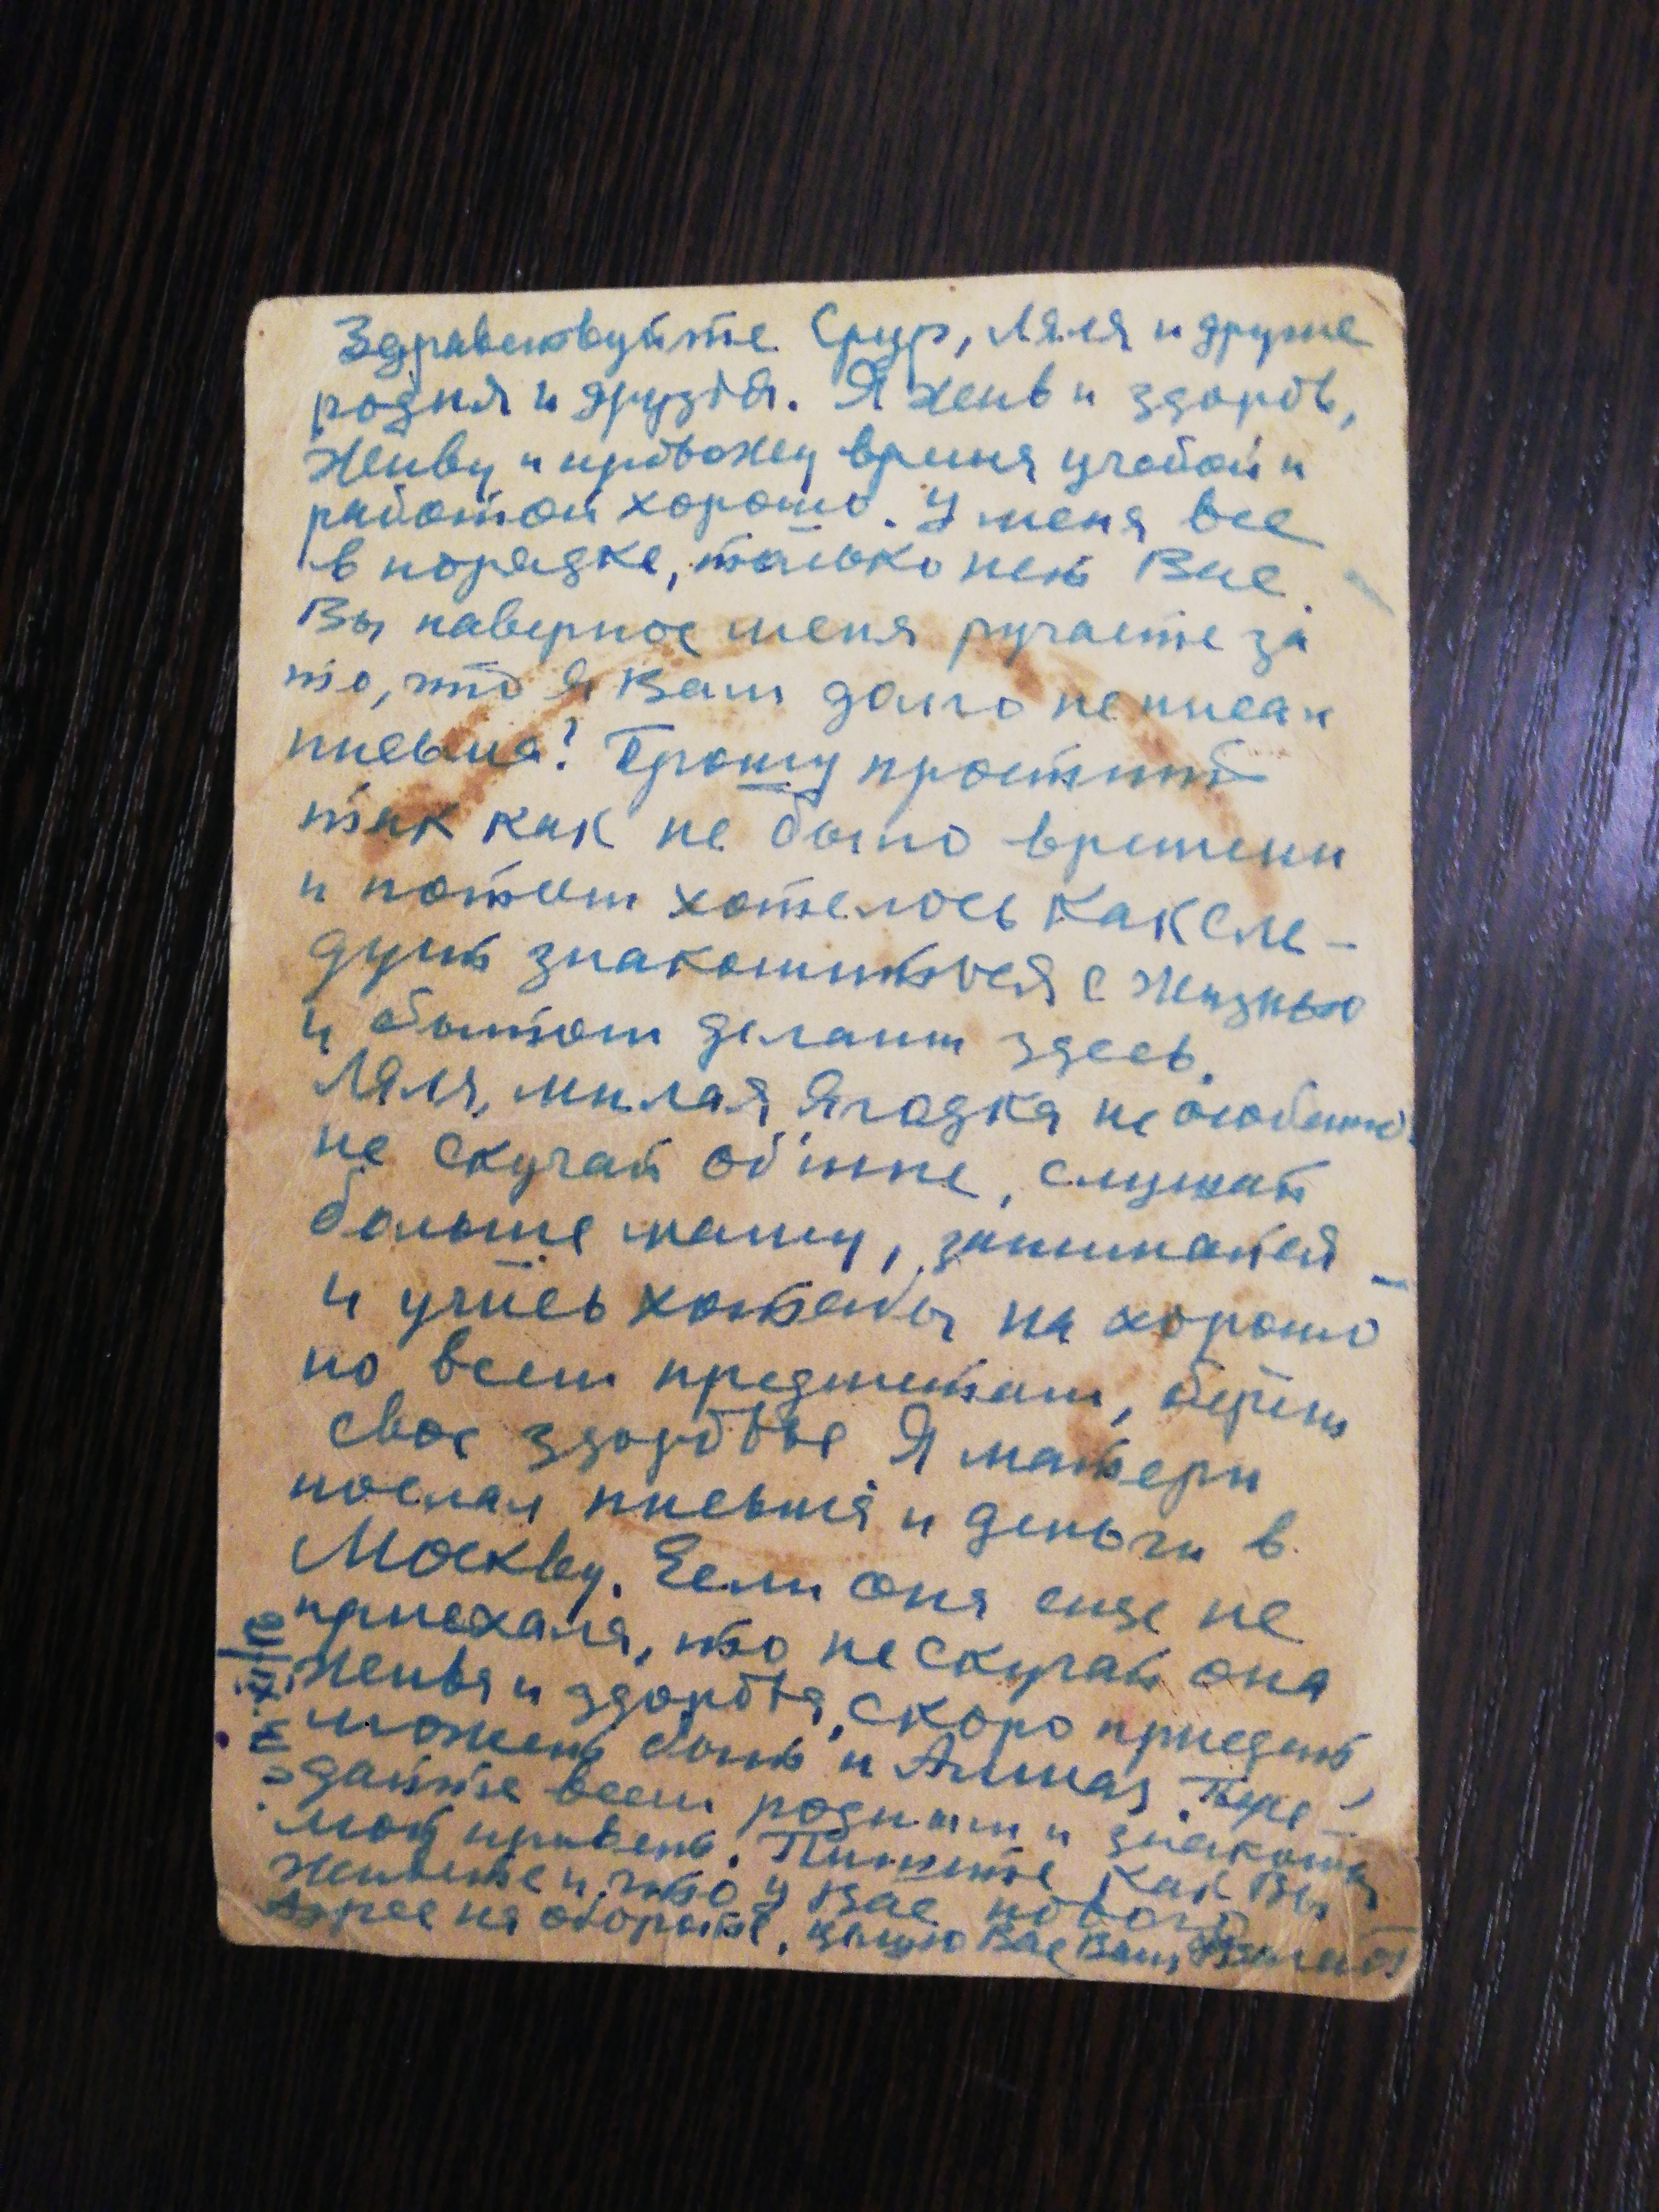 Здравствуйте Срур, Ляля и другие
родня и друзья. Я жив и здоров,
живу и провожу время учебой и
работой хорошо. У меня все
в порядке, только нет Вас.
Вы наверное меня ругаете за
то, что я Вам долго не писал
письма? Прошу простить
так как не было времени
и потом хотелось как сле-
дует знакомиться с жизнью
и бытом делами здесь.
Ляля, милая Ягодка не особенно
не скучай обо мне, слушай
больше маму, занимайся -
и учись хотябы на хорошо
по всем предметам, береги
свое здоровье Я матери
послал письмо и деньги в
Москву. Если она еще не
приехала, то не скучай она
жива и здорова, скоро приедет
может быть и Алмаз. Пере-
дайте всем родным и знакомым
мой привет. Пишите как Вы
живете и что у Вас нового
Адрес на обороте, целую Вас Ваш